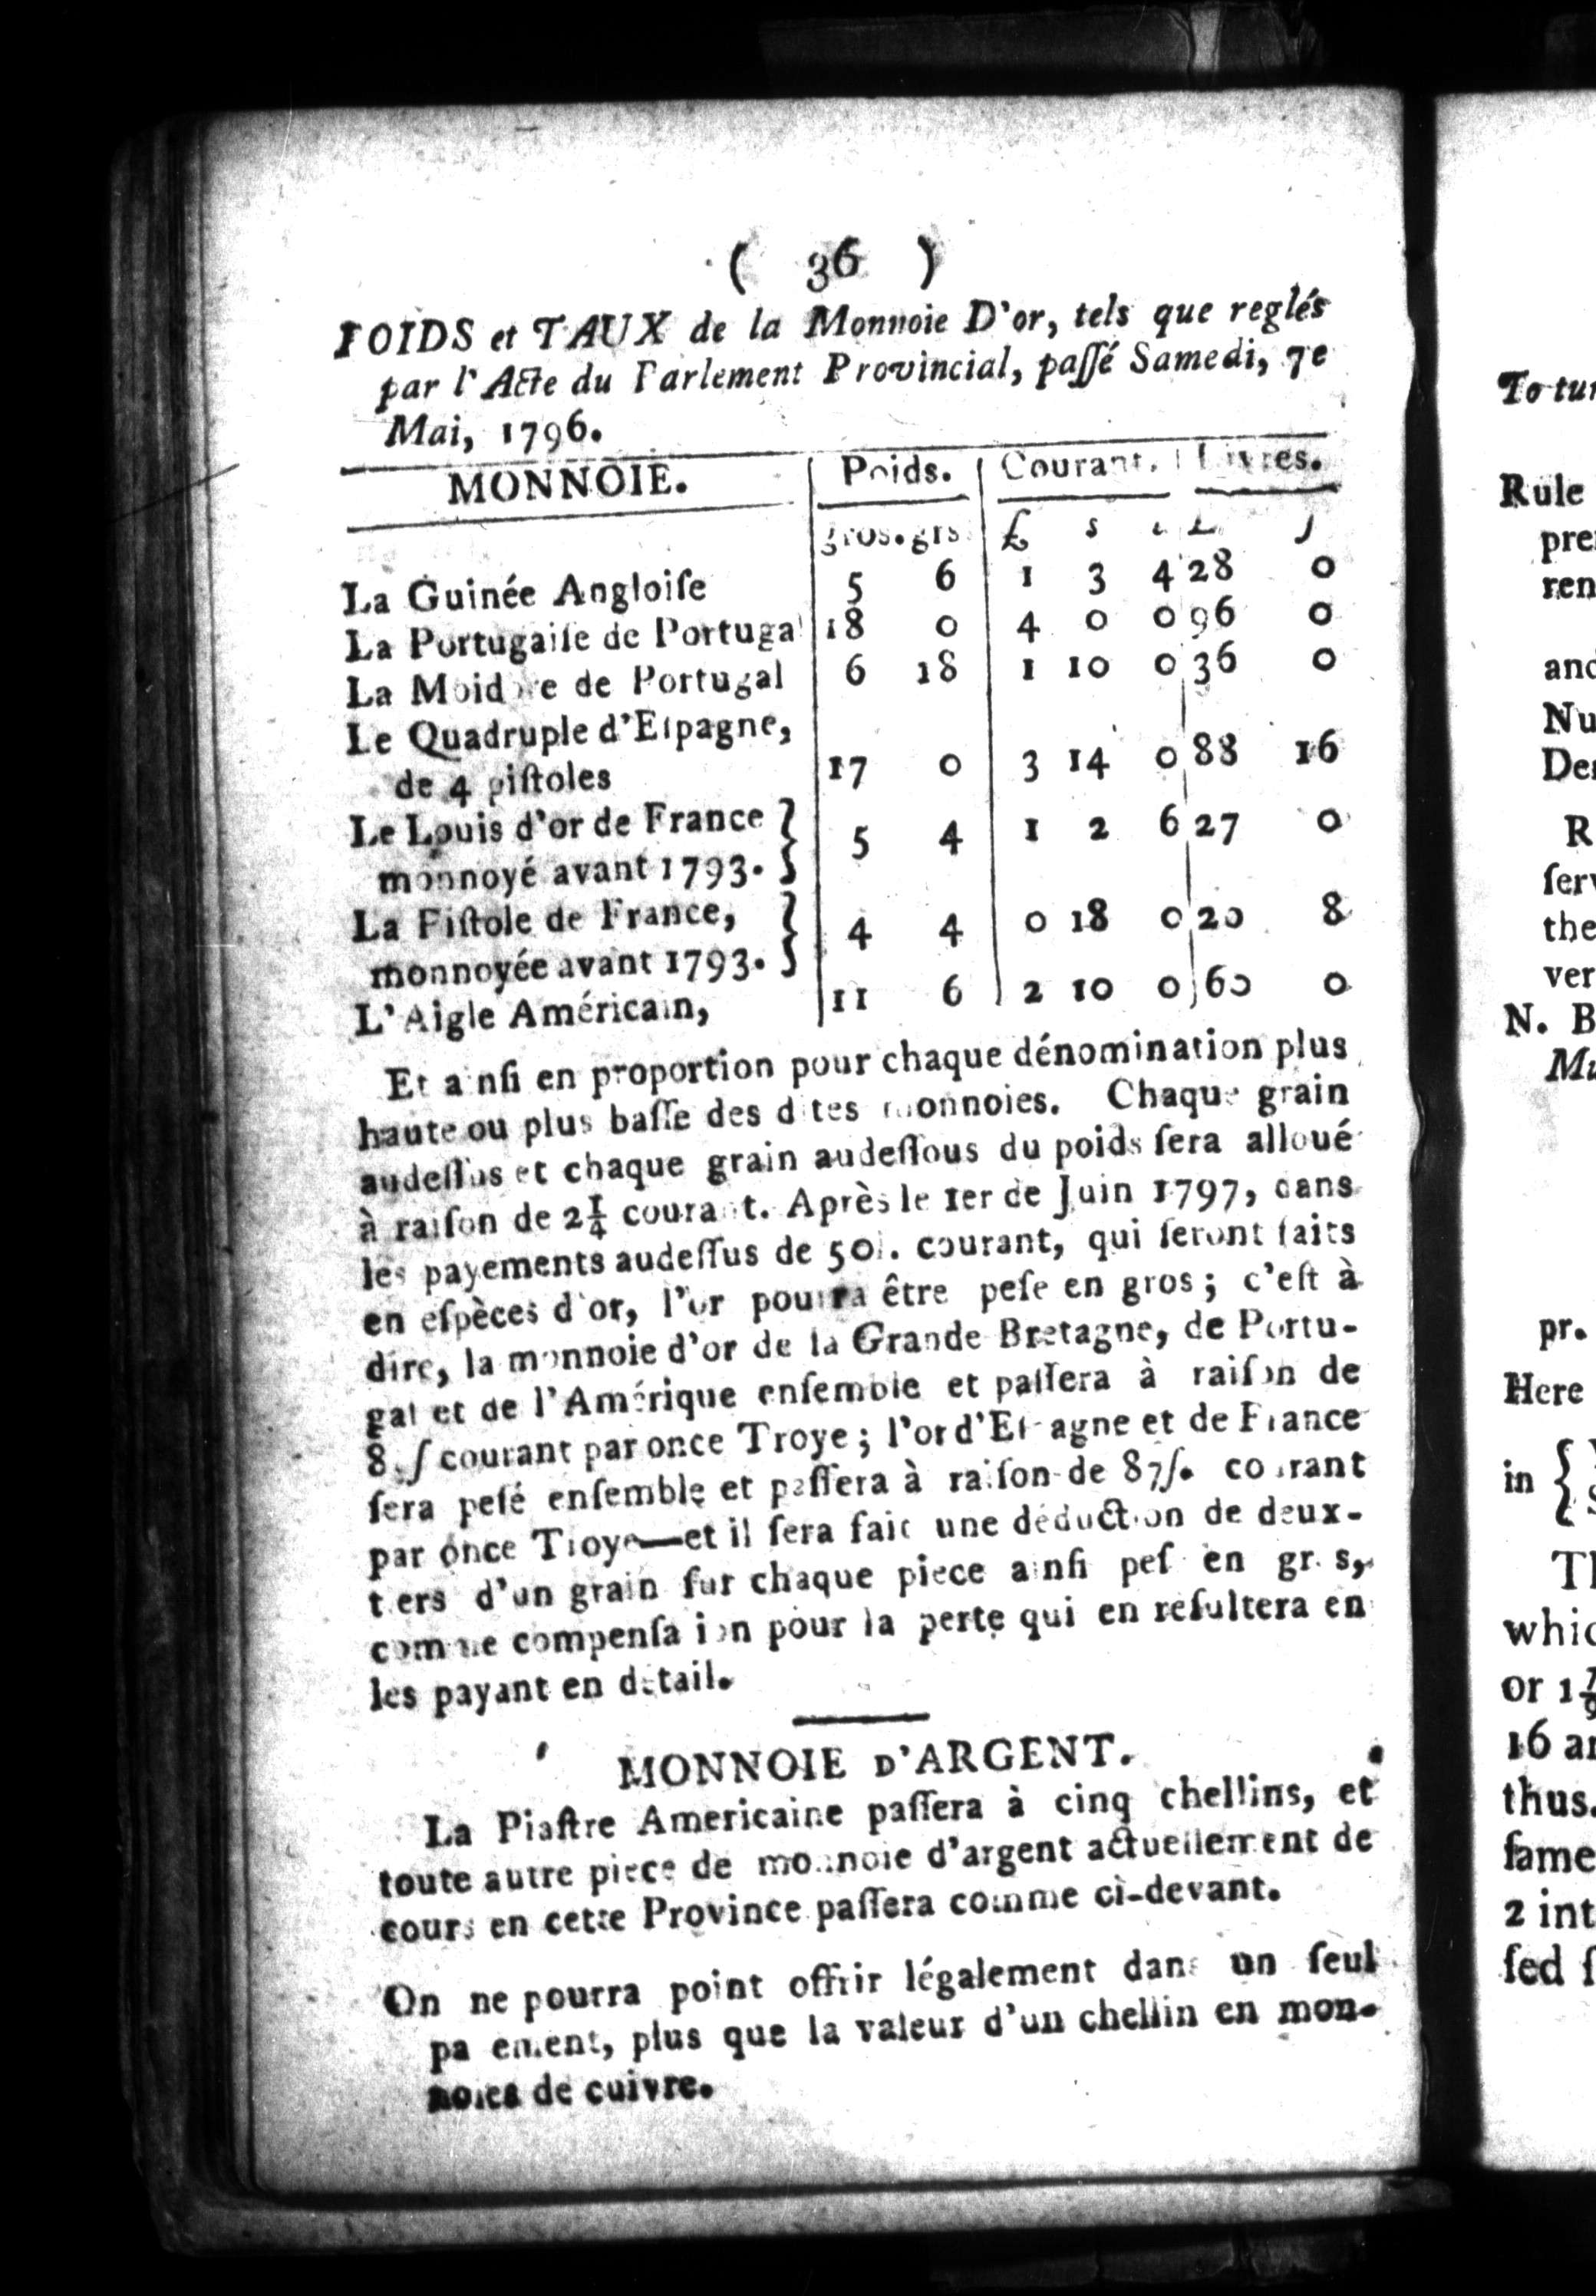 ( 36 )
POIDS et TAUX de la Monnoie D'or, tels que reglés
par l'Acte du Parlement Provincial, paſſé Samedi, 7e
Mai, 1796.
MONNOIE. Poids. Courant. Livres.
gros. grs. £ s
La Guinée Angloiſe 5 6 1 3 4 28 0
La Portugaiſe de Portugal 18 0 4 0 0 96 0
La Moidore de Portugal 6 18 1 10 0 36 0
Le Quadruple d'Eſpagne,
de 4 piſtoles 17 0 3 14 0 88 16
Le Louis d'or de France
monnoyé avant 1793. 5 4 1 2 6 27 0
La Piſtole de France,
monnoyée avant 1793. 4 4 0 18 0 20 8
L'Aigle Américain, 11 6 2 10 0 60 0
Et ainſi en proportion pour chaque dénomination plus
haute ou plus baſſe des dites monnoies. Chaque grain
audeſſus et chaque grain audeſſous du poids ſera alloué
à raiſon de 2¼ courant. Après le 1er de Juin 1797, dans
les payements audeſſus de 50l. courant, qui ſeront faits
en eſpèces d'or, l'or pourra être peſe en gros; c'eſt à
dire, la monnoie d'or de la Grande Bretagne, de Portu-
gal et de l'Amérique enſemble et paſſera à raiſon de
ſ courant par once Troye; l'or d'Eſpagne et de France
ſera peſé enſemble et paſſera à raiſon de 87ſ. courant
par once Troye—et il ſera fait une déduction de deux-
tiers d'un grain ſur chaque piece ainſi peſé en gros,
comme compenſation pour la perte qui en reſultera en
les payant en détail.
MONNOIE D'ARGENT.
La Piaſtre Americaine paſſera à cinq chellins, et
toute autre piece de monnoie d'argent actuellement de
cours en cette Province paſſera comme ci-devant.
On ne pourra point offrir légalement dans un ſeul
paiement, plus que la valeur d'un chellin en mon-
noies de cuivre.
To tur
Rule
pre
ren
and
Nu
Den
R
ſerv
the
ver
N. B
Mu
pr.
Here
in {
Th
whic
or 1
16 an
thus.
ſame
2 int
ſed ſ